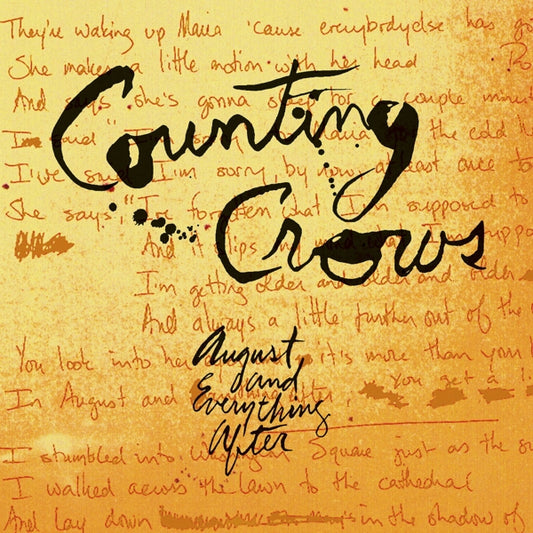 They're waking up Maria 'cause everybody else has go
She makes a little motion with her head
And says she's gonna sleep for a couple minut
Counting
I've said I'm sorry by now, at least once to
She says, "I've forgotten what I'm supposed to
Crows
And it slips my mind what I'm suppo
I'm getting older and older and older
And always a little further out of the
August
You look into her it's more than your
and
In August and Everything After, You get a
Everything
After
I stumbled into Square just as the su
I walked across the lawn to the cathedral
And lay down in the shadow of